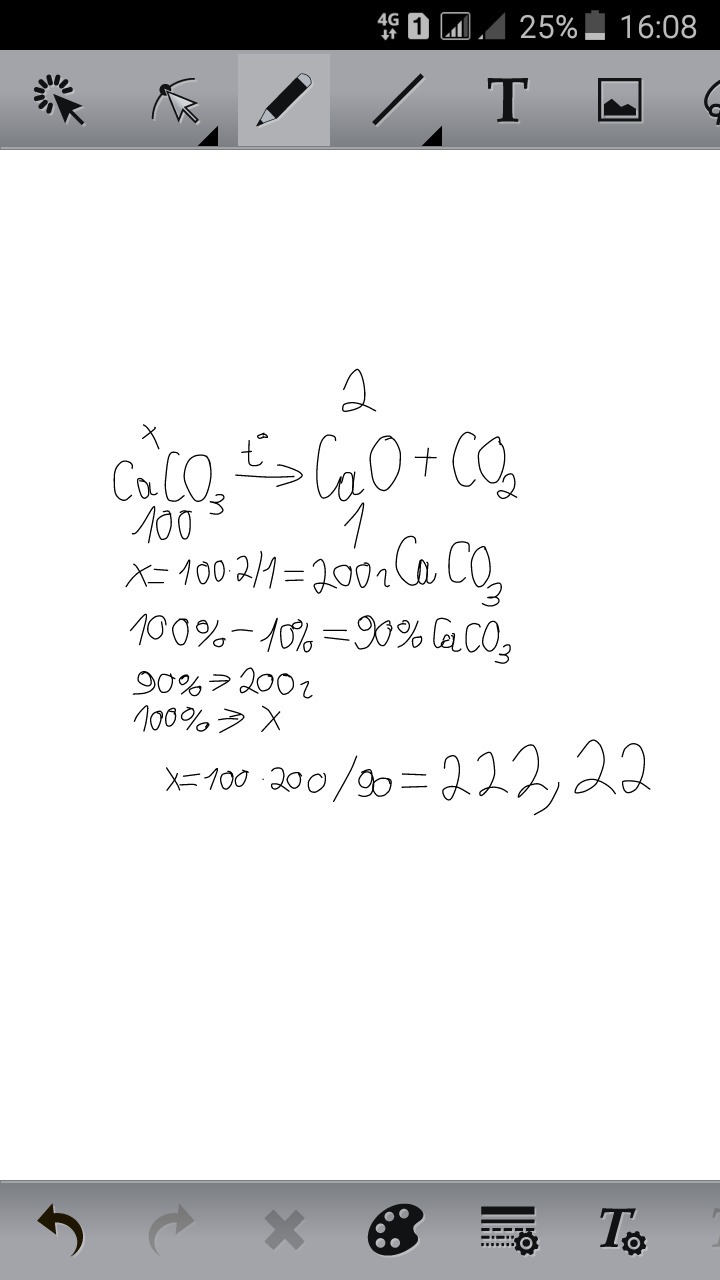 4G 1 25% 16:08
T
2
x
CaCO₃ t° → CaO + CO₂
100 1
x = 100·2/1 = 200г CaCO₃
100% - 10% = 90% CaCO₃
90% ⇒ 200г
100% ⇒ x
x = 100 · 200 / 90 = 222,22
T